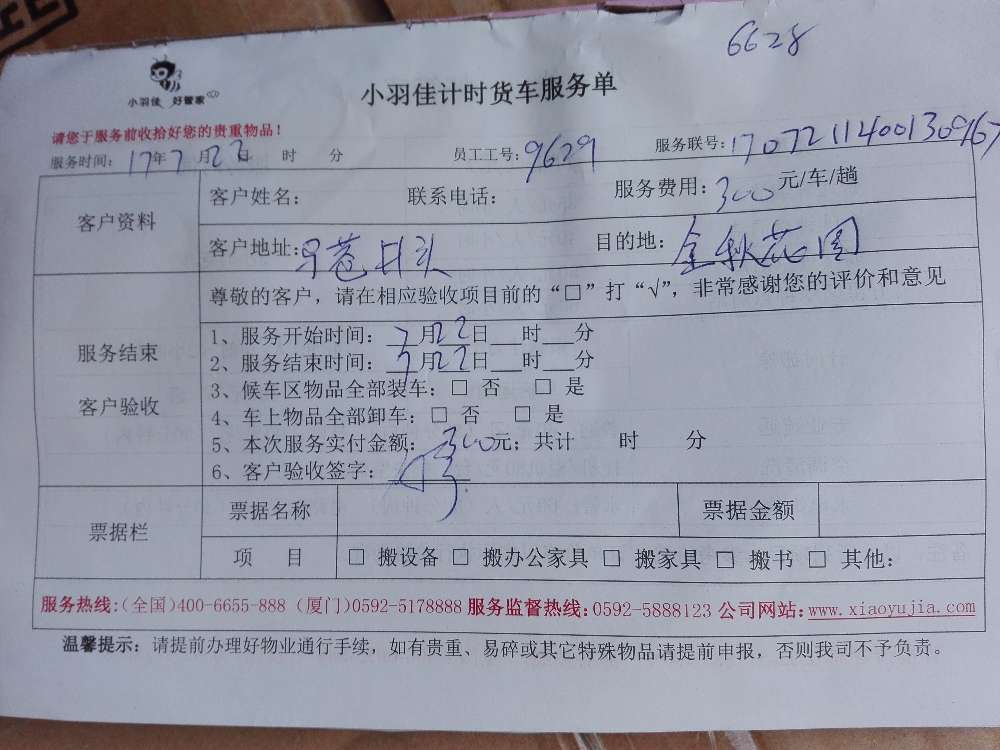 6628
小羽佳 好管家
小羽佳计时货车服务单
请您于服务前收拾好您的贵重物品！
服务时间：17年7月22日 时 分 员工工号：9629 服务联号：170721140013096
客户资料
客户姓名： 联系电话： 服务费用：300元/车/趟
客户地址： 井头 目的地：金秋花园
尊敬的客户，请在相应验收项目前的“□”打“√”，非常感谢您的评价和意见
服务结束
客户验收
1、服务开始时间：7月22日___时___分
2、服务结束时间：7月22日___时___分
3、候车区物品全部装车：□ 否 □ 是
4、车上物品全部卸车：□ 否 □ 是
5、本次服务实付金额：300元；共计 时 分
6、客户验收签字：
票据栏
票据名称 票据金额
项 目 □ 搬设备 □ 搬办公家具 □ 搬家具 □ 搬书 □ 其他：
服务热线:(全国)400-6655-888 (厦门)0592-5178888 服务监督热线:0592-5888123 公司网站:www.xiaoyujia.com
温馨提示：请提前办理好物业通行手续，如有贵重、易碎或其它特殊物品请提前申报，否则我司不予负责。